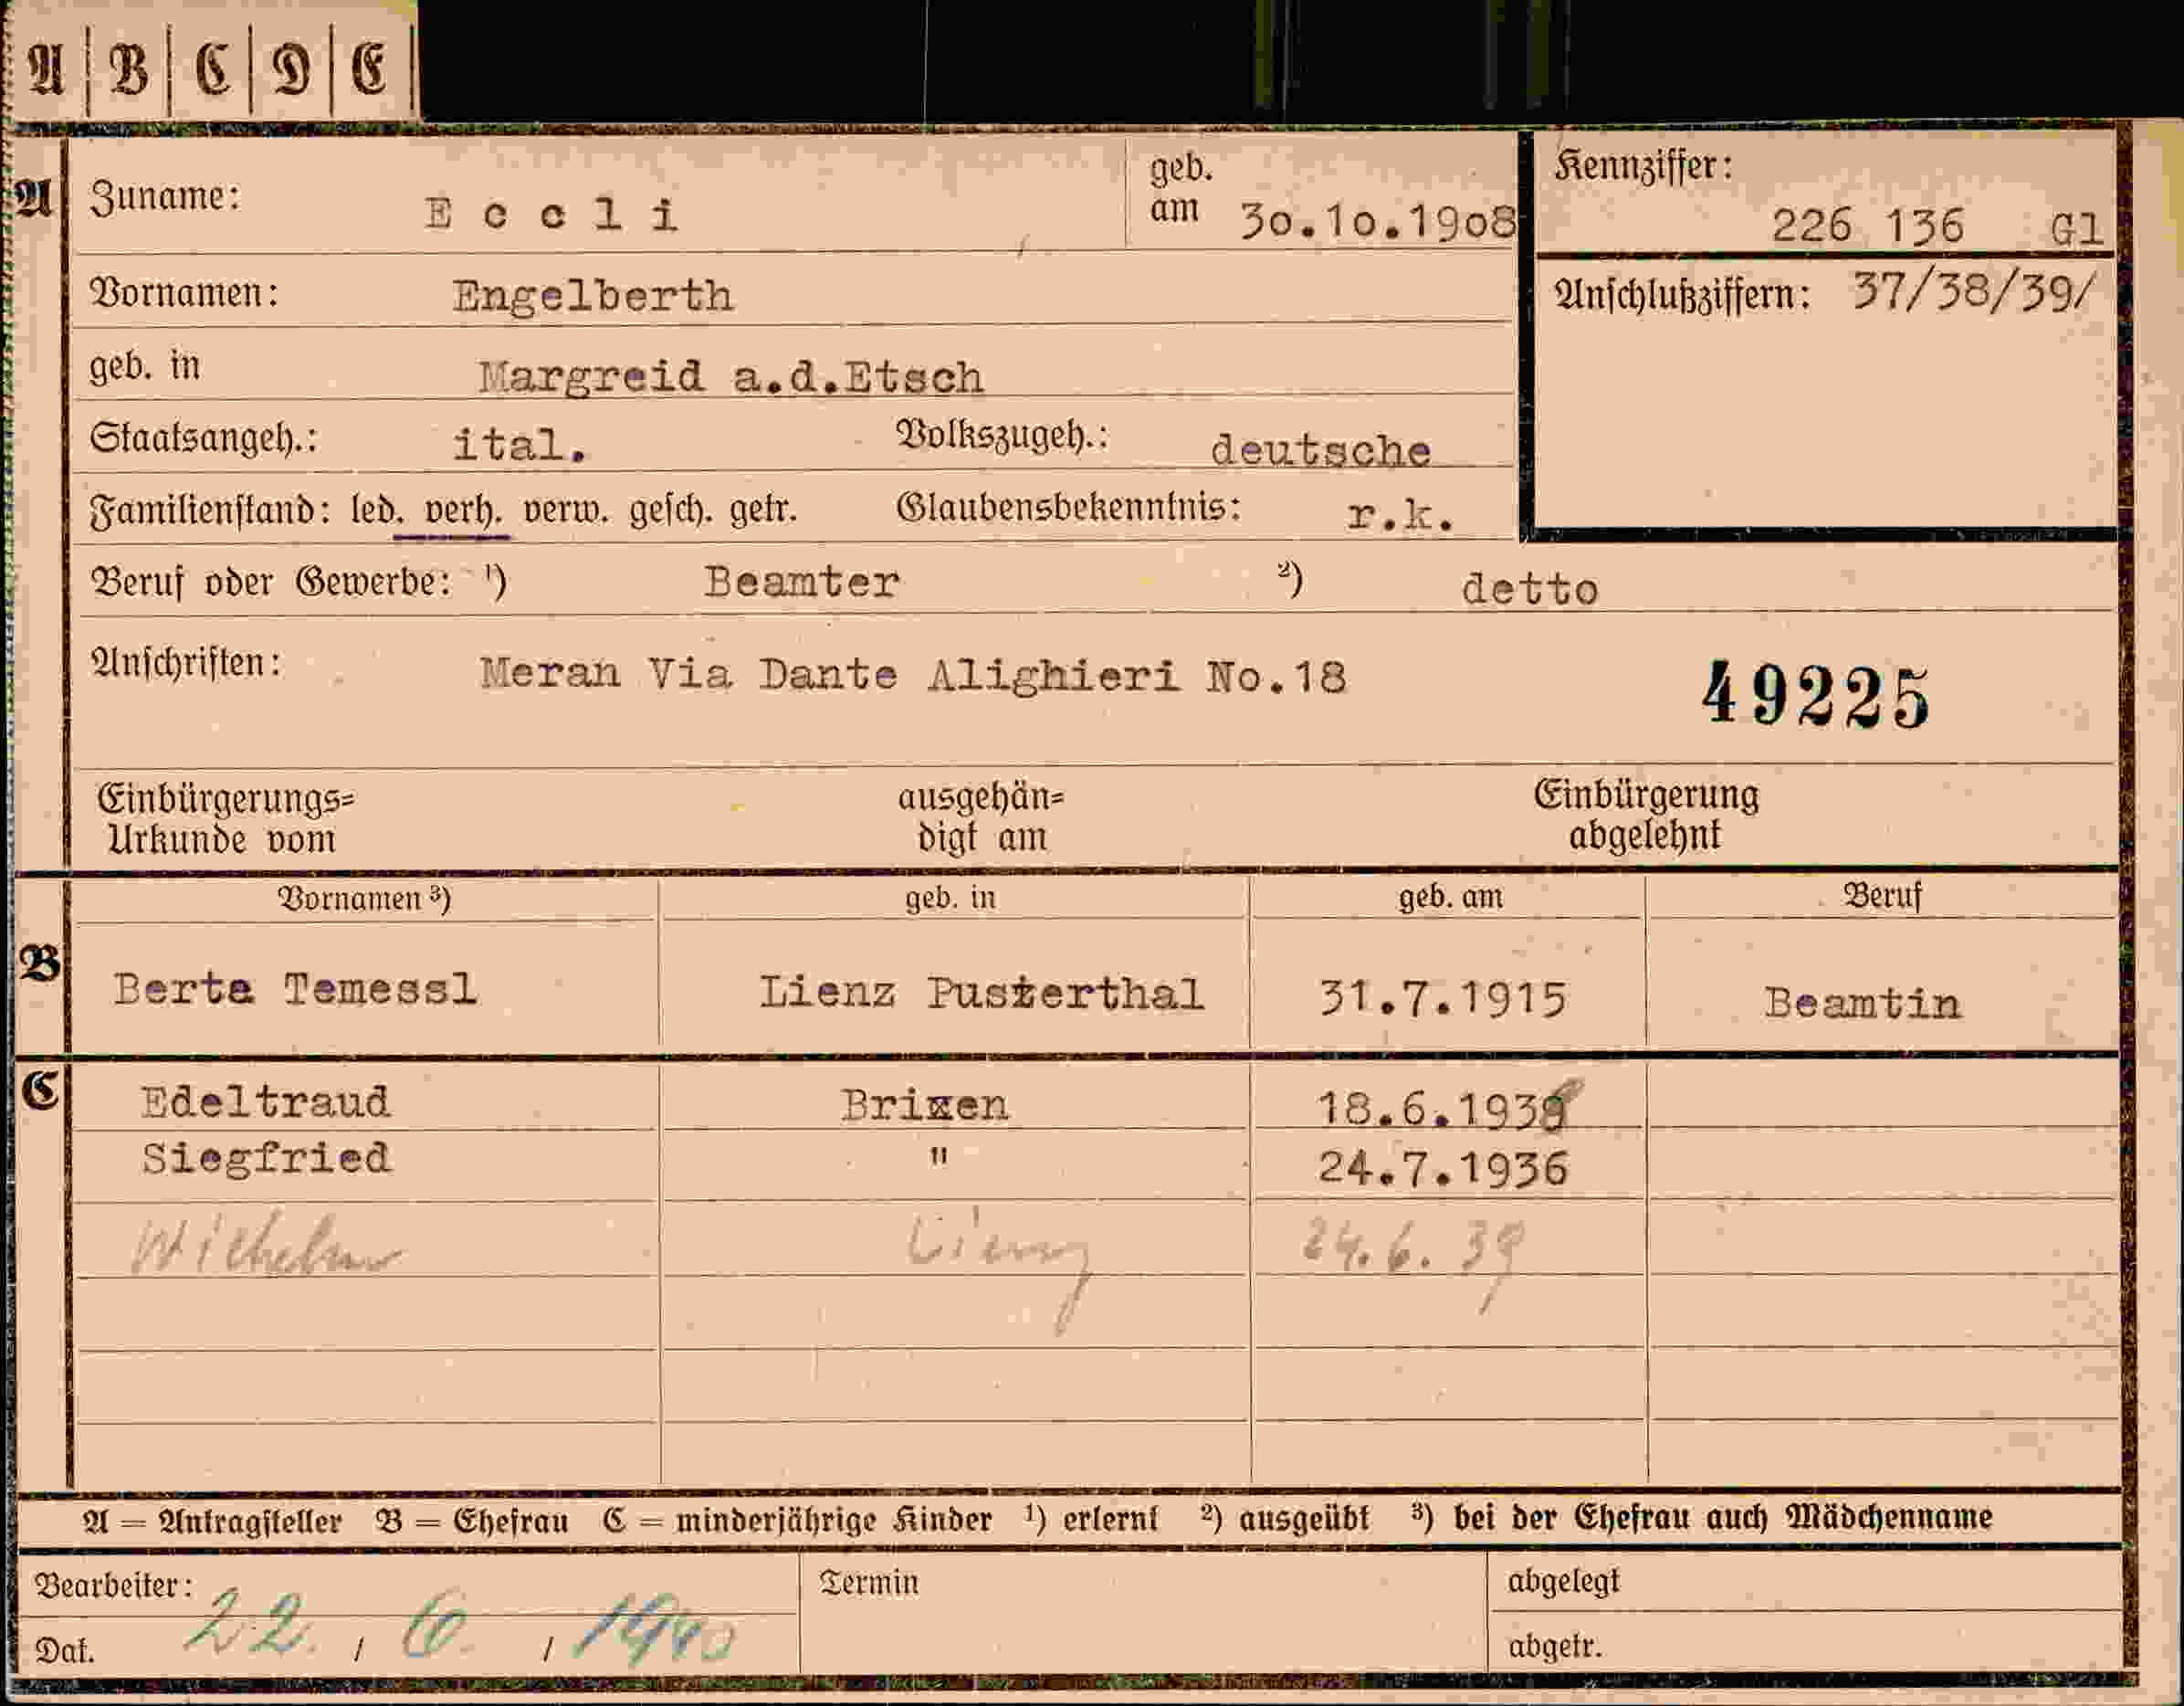 A | B | C | D | E |
A Zuname: E c c l i geb. am 30.10.1908 Kennziffer: 226 136 Gl
Vornamen: Engelberth Anschlußziffern: 37/38/39/
geb. in Margreid a.d.Etsch
Staatsangeh.: ital. Volkszugeh.: deutsche
Familienstand: led. verh. verw. gesch. getr. Glaubensbekenntnis: r.k.
Beruf oder Gewerbe: 1) Beamter 2) detto
Anschriften: Meran Via Dante Alighieri No.18 49225
Einbürgerungs= ausgehän= Einbürgerung
Urkunde vom digt am abgelehnt
Vornamen 3) geb. in geb. am Beruf
B Berta Temessl Lienz Pusterthal 31.7.1915 Beamtin
C Edeltraud Brixen 18.6.1938
Siegfried " 24.7.1936
Wilhelm Lienz 24.6.39
A = Antragsteller B = Ehefrau C = minderjährige Kinder 1) erlernt 2) ausgeübt 3) bei der Ehefrau auch Mädchenname
Bearbeiter: Termin abgelegt
Dat. 22. / 6. / 1940 abgetr.